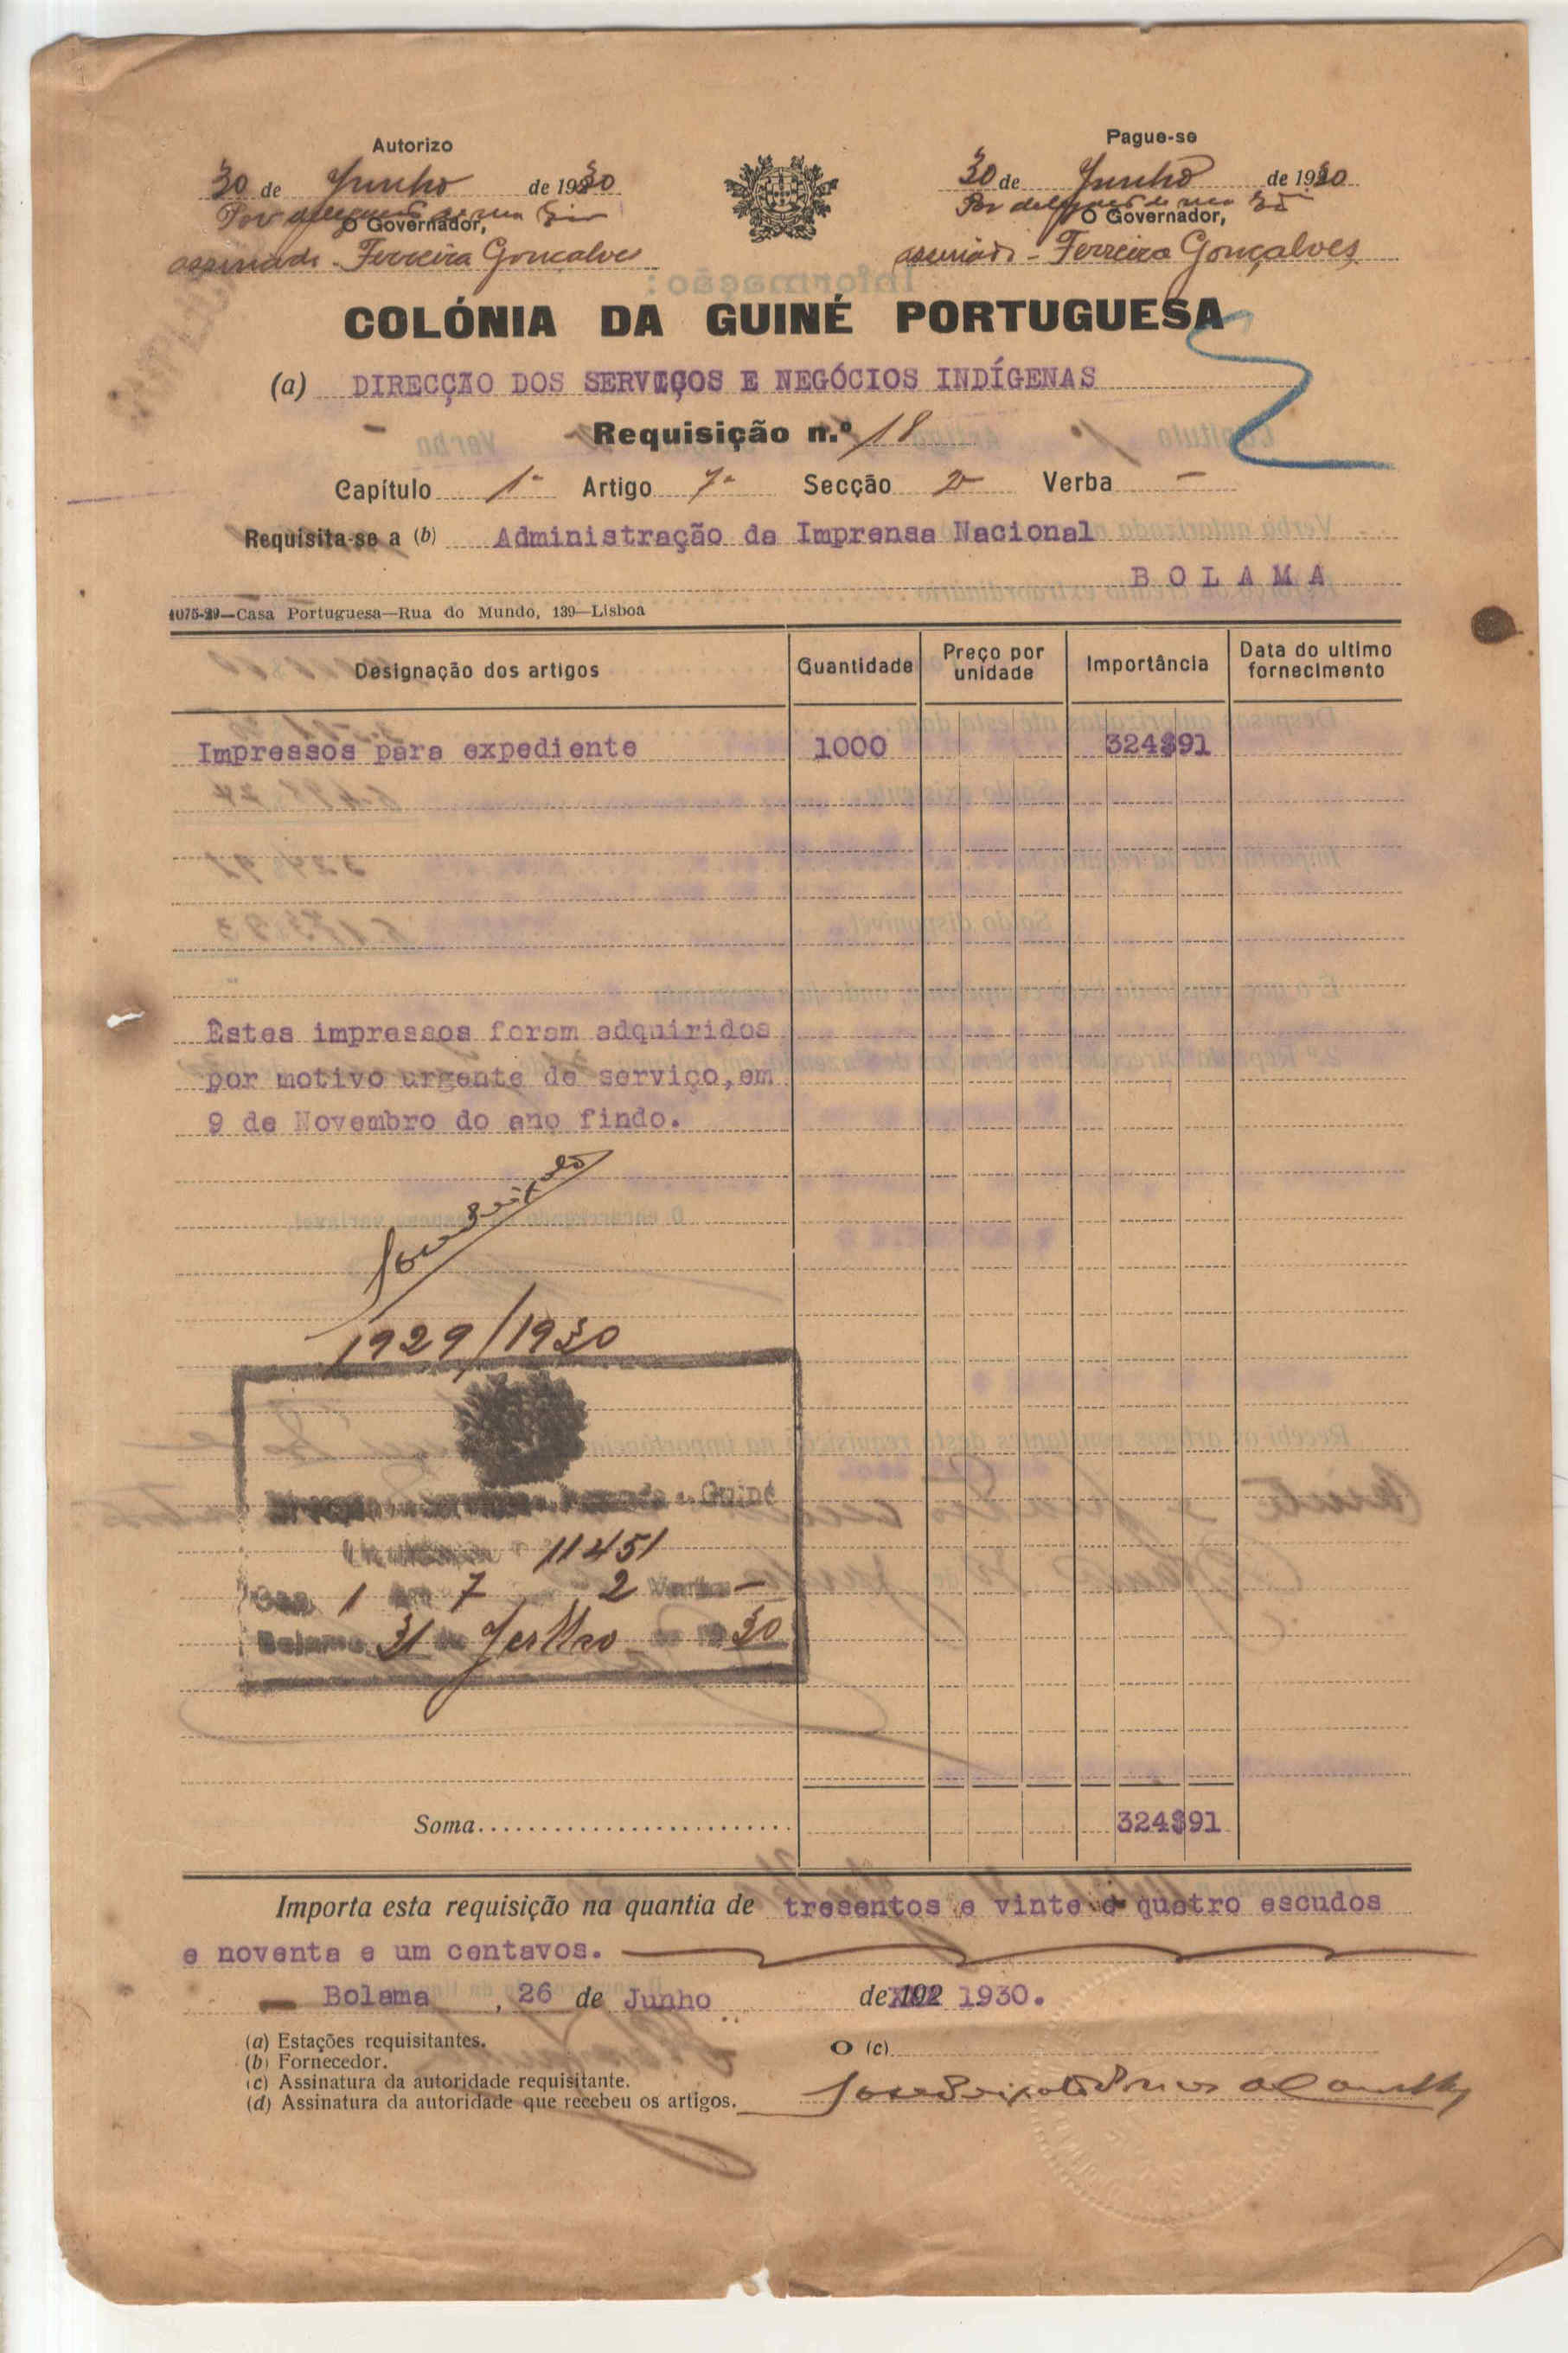 Autorizo
30 de Junho de 1930
Por
O Governador,
Ferreira Gonçalves
Pague-se
30 de Junho de 1930
Por
O Governador,
Ferreira Gonçalves
COLÓNIA DA GUINÉ PORTUGUESA
(a) DIRECÇÃO DOS SERVIÇOS E NEGÓCIOS INDÍGENAS
Requisição n.º 18
Capítulo 1º Artigo 7º Secção 2ª Verba —
Requisita-se a (b) Administração da Imprensa Nacional
BOLAMA
1075-29—Casa Portuguesa—Rua do Mundo, 139—Lisboa
Designação dos artigos Quantidade Preço por unidade Importância Data do ultimo fornecimento
Impressos para expediente 1000 324$91
Estes impressos foram adquiridos
por motivo urgente de serviço, em
9 de Novembro do ano findo.
1929/1930
Guiné
11451
Cap. 1 7 2 Verba —
Bolama 31 de 30
Soma 324$91
Importa esta requisição na quantia de tresentos e vinte e quatro escudos
e noventa e um centavos.
Bolama, 26 de Junho de 192 1930.
(a) Estações requisitantes.
(b) Fornecedor.
(c) Assinatura da autoridade requisitante.
(d) Assinatura da autoridade que recebeu os artigos.
O (c)